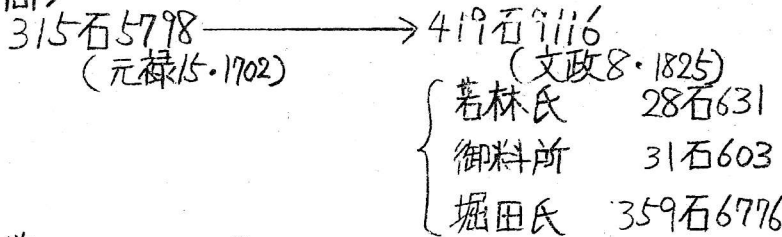 315石5798 → 419石9116
(元禄15・1702) (文政8・1825)
若林氏 28石631
御料所 31石603
堀田氏 359石6776